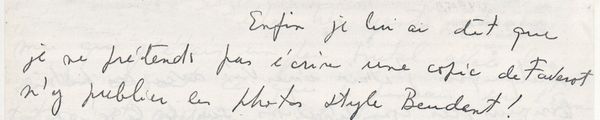 Enfin je lui ai dit que
je ne prétends pas écrire une copie de Faverot
n'y publier les photos style Beudant!